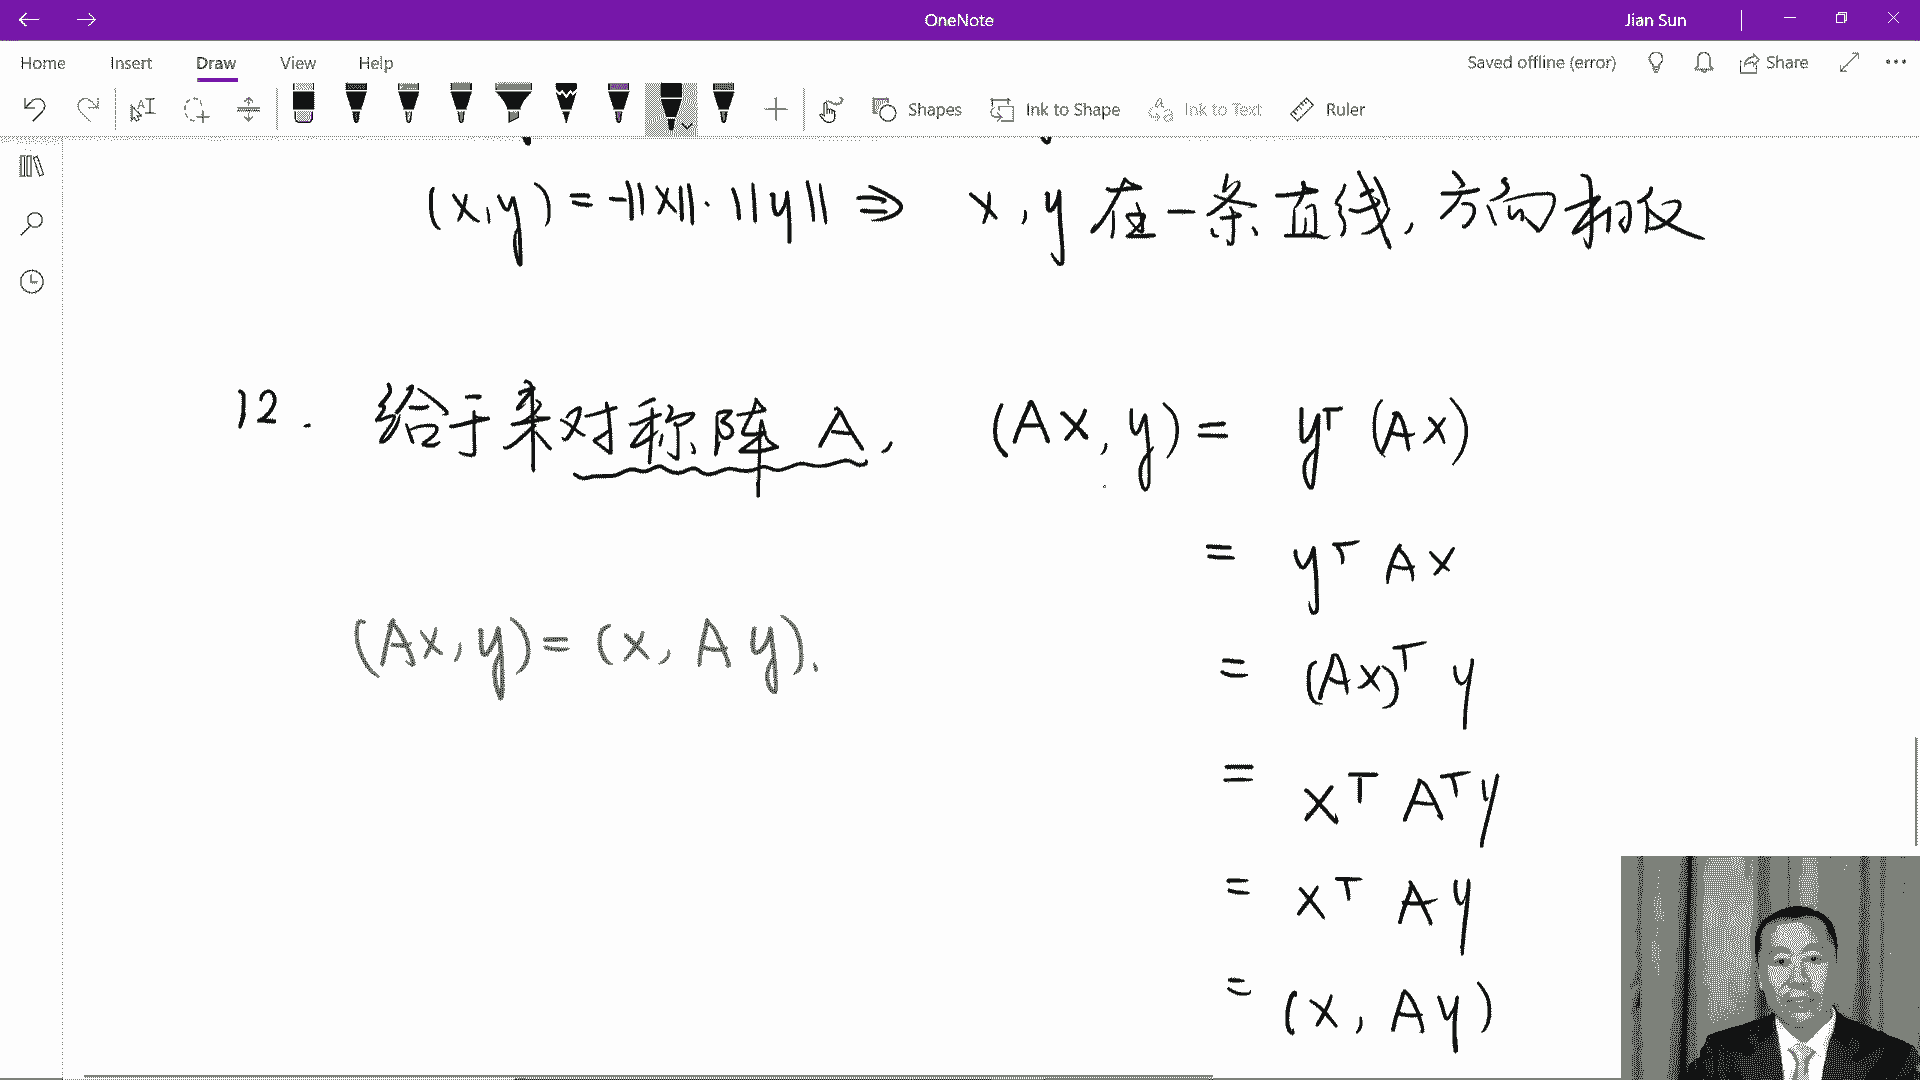 OneNote
Jian Sun
Home Insert Draw View Help
Saved offline (error) Share
Shapes Ink to Shape Ink to Text Ruler
(x,y) = -||x||·||y|| ⇒ x, y 在一条直线, 方向相反
12. 给于来对称阵 A, (Ax, y) = yᵀ(Ax)
= yᵀ Ax
(Ax, y) = (x, Ay).
= (Ax)ᵀ y
= xᵀ Aᵀ y
= xᵀ A y
= (x, Ay)